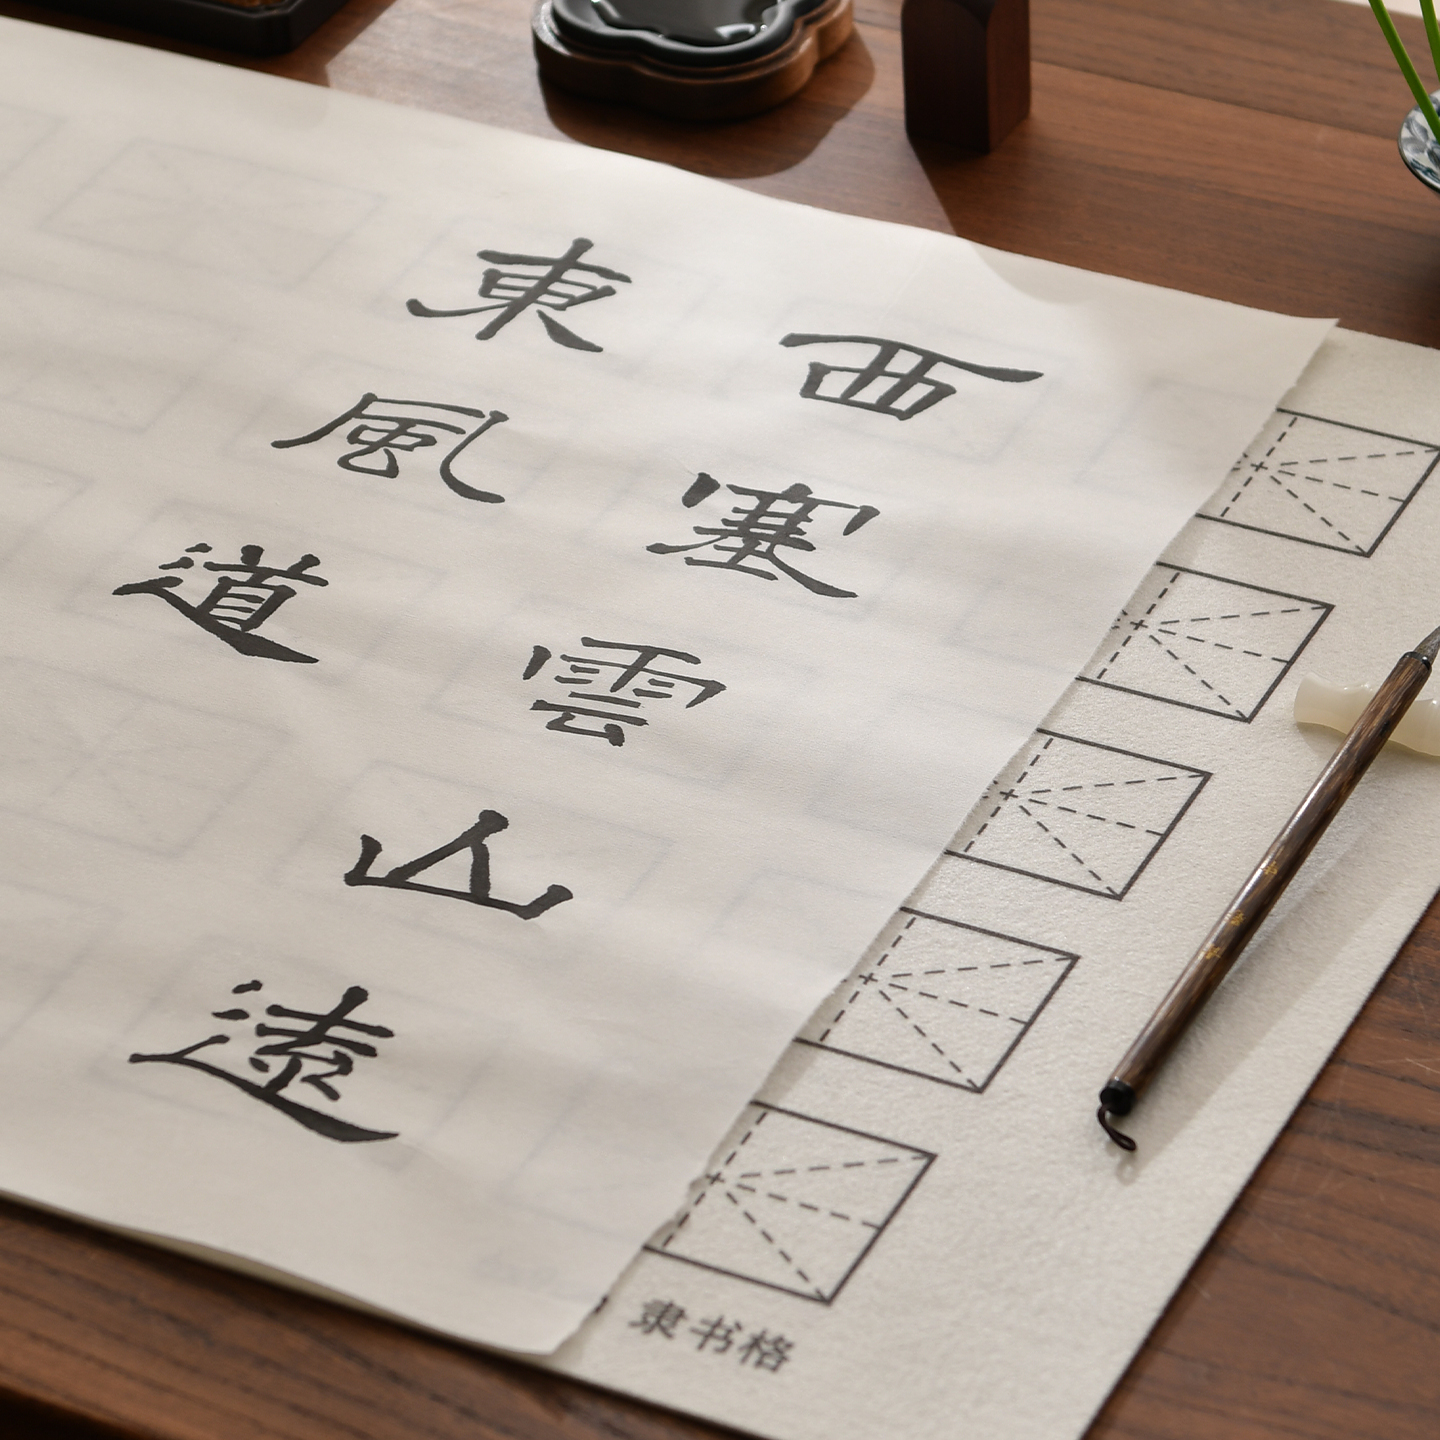 西塞雲山遠
東風道
隶书格